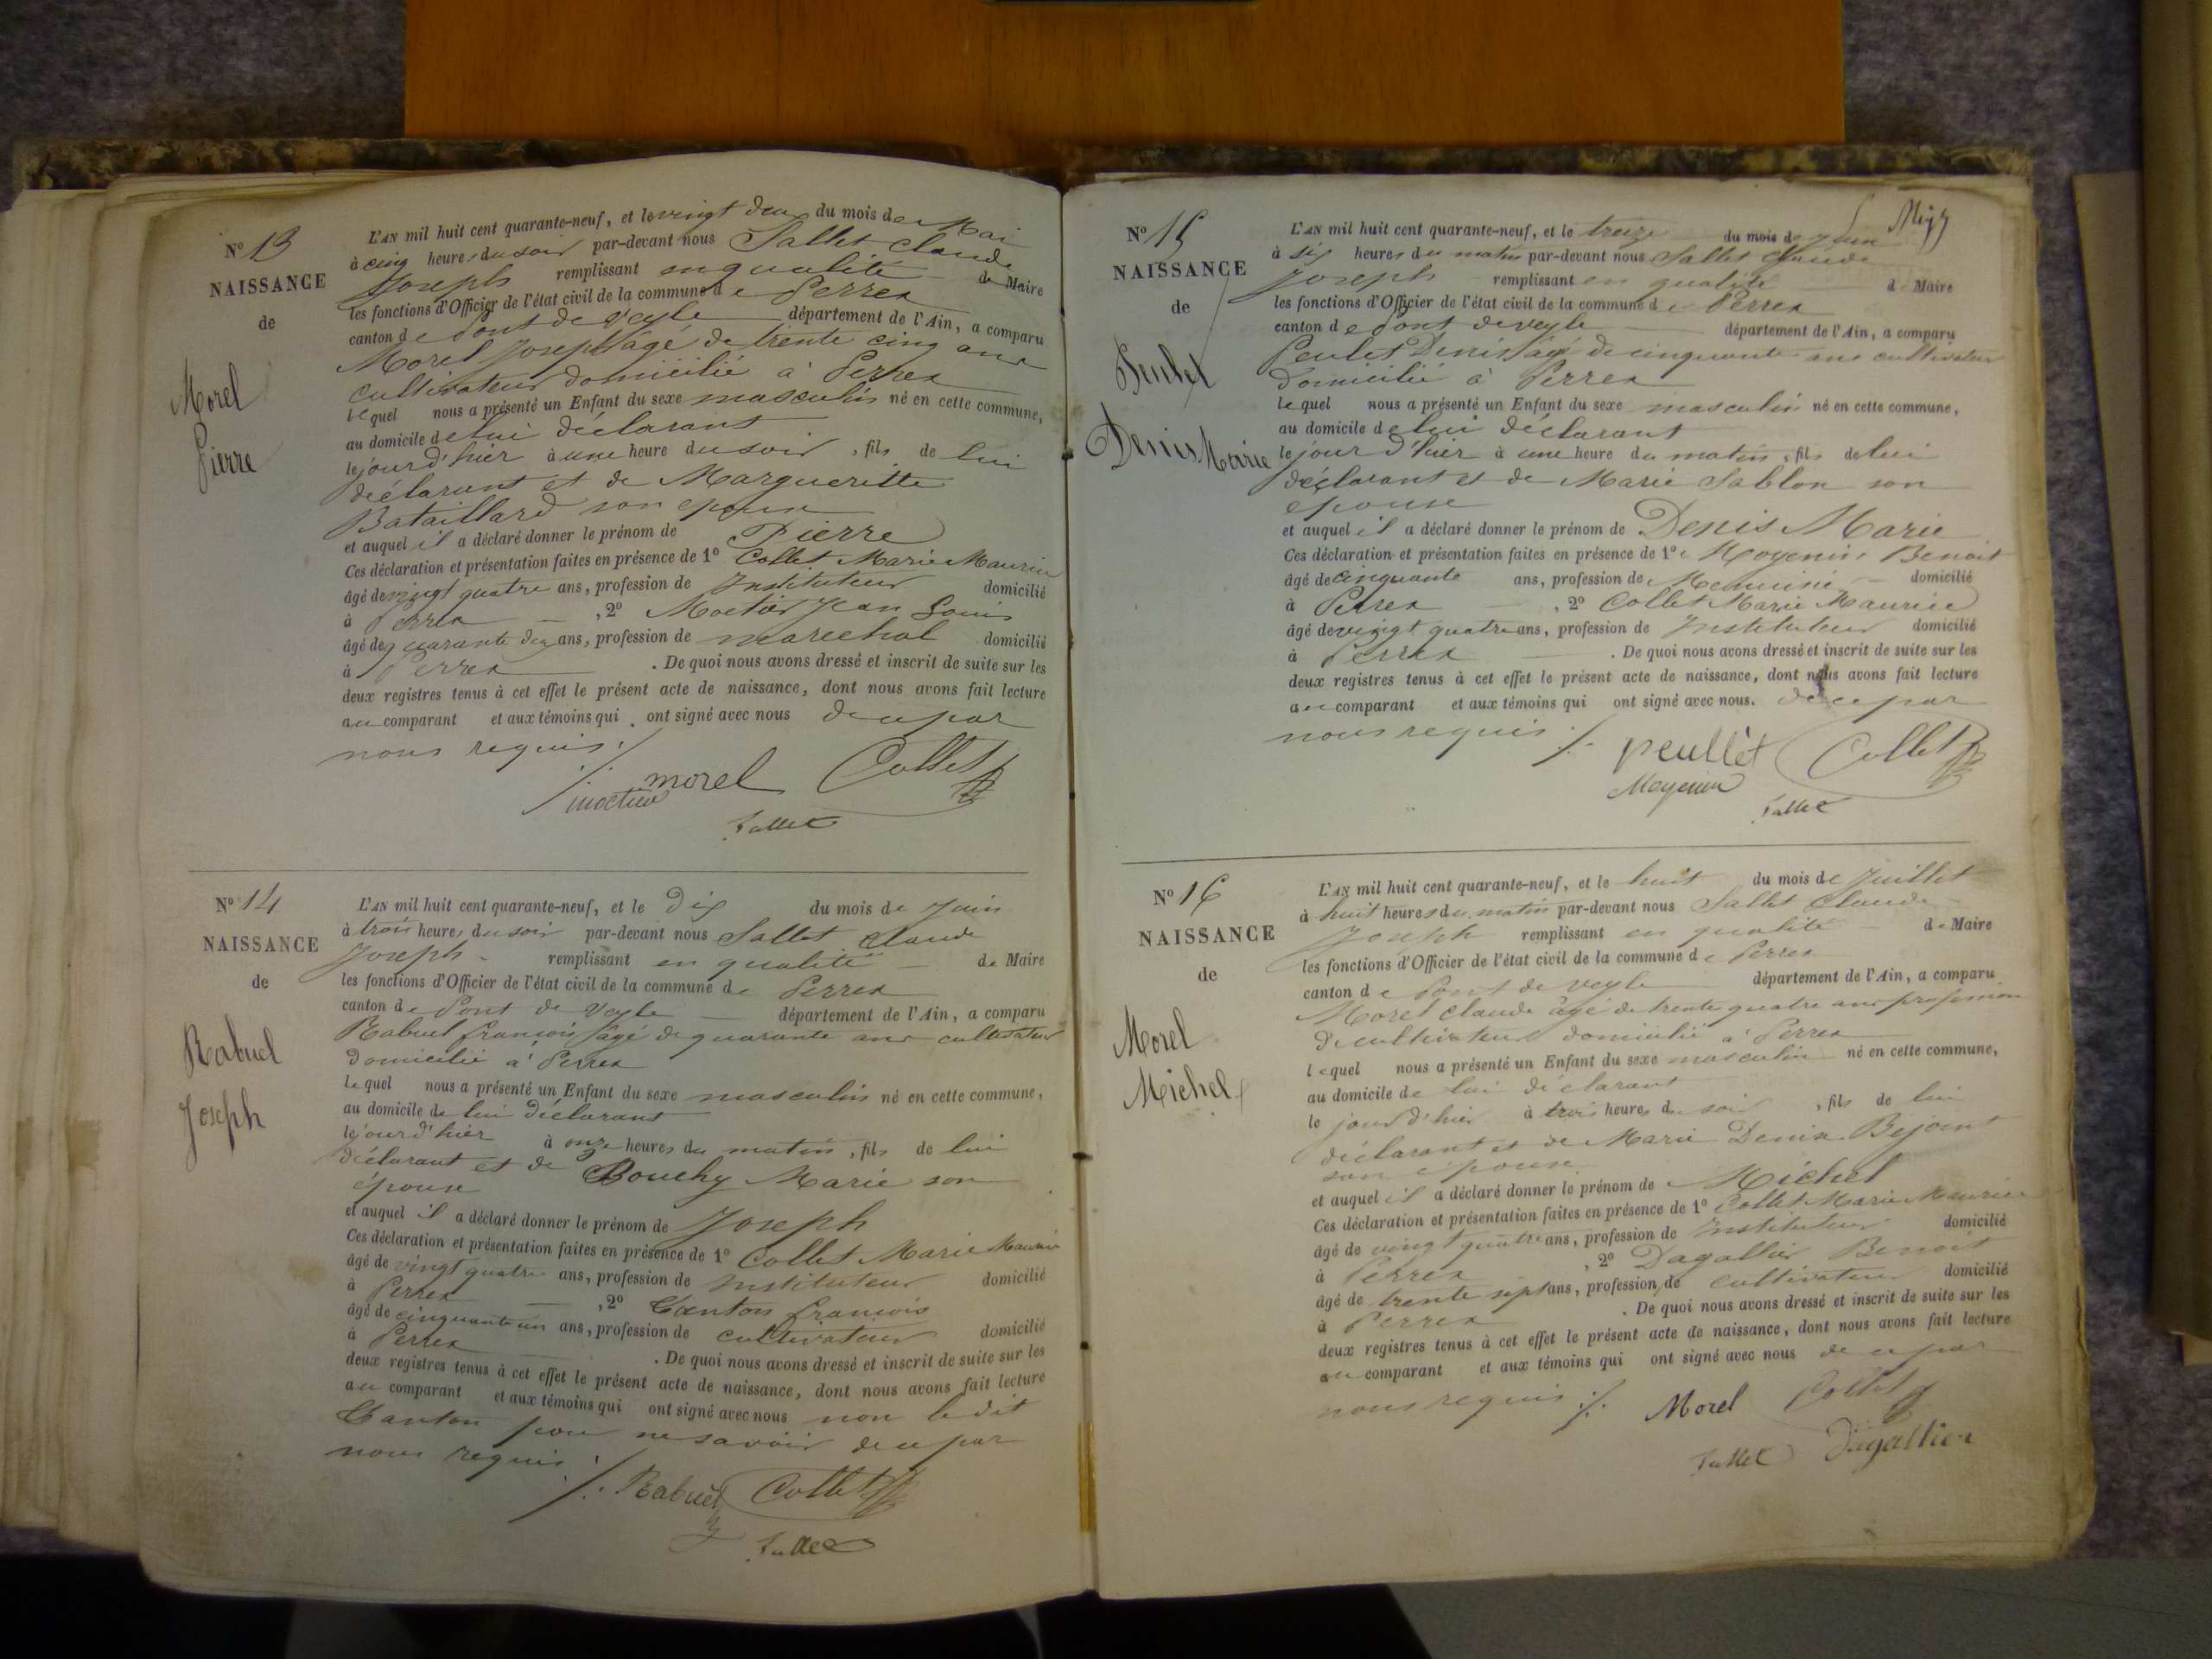 N° 13
NAISSANCE
de
Morel
Pierre
L'AN mil huit cent quarante-neuf, et le vingt deux du mois de Mai
à cinq heures du soir par-devant nous Sallet Claude
Joseph remplissant en qualité de Maire
les fonctions d'Officier de l'état civil de la commune de Perrex
canton de Pont de Veyle département de l'Ain, a comparu
Morel Joseph âgé de trente cinq ans
cultivateur domicilié à Perrex
lequel nous a présenté un Enfant du sexe masculin né en cette commune,
au domicile de lui déclarant
le jour d'hier à une heure du soir, fils de lui
déclarant et de Margueritte
Bataillard son epouse
et auquel il a déclaré donner le prénom de Pierre
Ces déclaration et présentation faites en présence de 1° Collet Marie Maurice
âgé de vingt quatre ans, profession de Instituteur domicilié
à Perrex, 2° Moctier Jean Louis
âgé de quarante deux ans, profession de marechal domicilié
à Perrex. De quoi nous avons dressé et inscrit de suite sur les
deux registres tenus à cet effet le présent acte de naissance, dont nous avons fait lecture
au comparant et aux témoins qui ont signé avec nous de ce par
nous requis ./.
morel Collet
moctier
Sallet
N° 14
NAISSANCE
de
Rabuel
Joseph
L'AN mil huit cent quarante-neuf, et le dix du mois de Juin
à trois heures du soir par-devant nous Sallet Claude
Joseph remplissant en qualité de Maire
les fonctions d'Officier de l'état civil de la commune de Perrex
canton de Pont de Veyle département de l'Ain, a comparu
Rabuel françois âgé de quarante ans cultivateur
domicilié à Perrex
lequel nous a présenté un Enfant du sexe masculin né en cette commune,
au domicile de lui déclarant
le jour d'hier à onze heures du matin, fils de lui
déclarant et de Bouchy Marie son
épouse
et auquel il a déclaré donner le prénom de Joseph
Ces déclaration et présentation faites en présence de 1° Collet Marie Maurice
âgé de vingt quatre ans, profession de Instituteur domicilié
à Perrex, 2° Canton françois
âgé de cinquante un ans, profession de cultivateur domicilié
à Perrex. De quoi nous avons dressé et inscrit de suite sur les
deux registres tenus à cet effet le présent acte de naissance, dont nous avons fait lecture
au comparant et aux témoins qui ont signé avec nous non le dit
Canton pour ne savoir de ce par
nous requis ./.
Rabuel Collet
Sallet
N° 15
NAISSANCE
de
Peulet
Denis Marie
L'AN mil huit cent quarante-neuf, et le treize du mois de Juin
à six heures du matin par-devant nous Sallet Claude
Joseph remplissant en qualité de Maire
les fonctions d'Officier de l'état civil de la commune de Perrex
canton de Pont de veyle département de l'Ain, a comparu
Peulet Denis âgé de cinquante ans cultivateur
domicilié à Perrex
lequel nous a présenté un Enfant du sexe masculin né en cette commune,
au domicile de lui déclarant
le jour d'hier à une heure du matin, fils de lui
déclarant et de Marie Sablon son
epouse
et auquel il a déclaré donner le prénom de Denis Marie
Ces déclaration et présentation faites en présence de 1° Moyenin Benoit
âgé de cinquante ans, profession de domicilié
à Perrex, 2° Collet Marie Maurice
âgé de vingt quatre ans, profession de Instituteur domicilié
à Perrex. De quoi nous avons dressé et inscrit de suite sur les
deux registres tenus à cet effet le présent acte de naissance, dont nous avons fait lecture
au comparant et aux témoins qui ont signé avec nous. de ce par
nous requis ./.
peullet Collet
Moyenin
Sallet
N° 16
NAISSANCE
de
Morel
Michel
L'AN mil huit cent quarante-neuf, et le huit du mois de Juillet
à huit heures du matin par-devant nous Sallet Claude
Joseph remplissant en qualité de Maire
les fonctions d'Officier de l'état civil de la commune de Perrex
canton de Pont de veyle département de l'Ain, a comparu
Morel Claude âgé de trente quatre ans profession
de cultivateur domicilié à Perrex
lequel nous a présenté un Enfant du sexe masculin né en cette commune,
au domicile de lui déclarant
le jour d'hier à trois heures du soir, fils de lui
déclarant et de Marie Denise Bejoint
son épouse
et auquel il a déclaré donner le prénom de Michel
Ces déclaration et présentation faites en présence de 1° Collet Marie Maurice
âgé de vingt quatre ans, profession de Instituteur domicilié
à Perrex, 2° Dagallier Benoit
âgé de trente sept ans, profession de cultivateur domicilié
à Perrex. De quoi nous avons dressé et inscrit de suite sur les
deux registres tenus à cet effet le présent acte de naissance, dont nous avons fait lecture
au comparant et aux témoins qui ont signé avec nous de ce par
nous requis ./.
Morel Collet
Sallet Dagallier